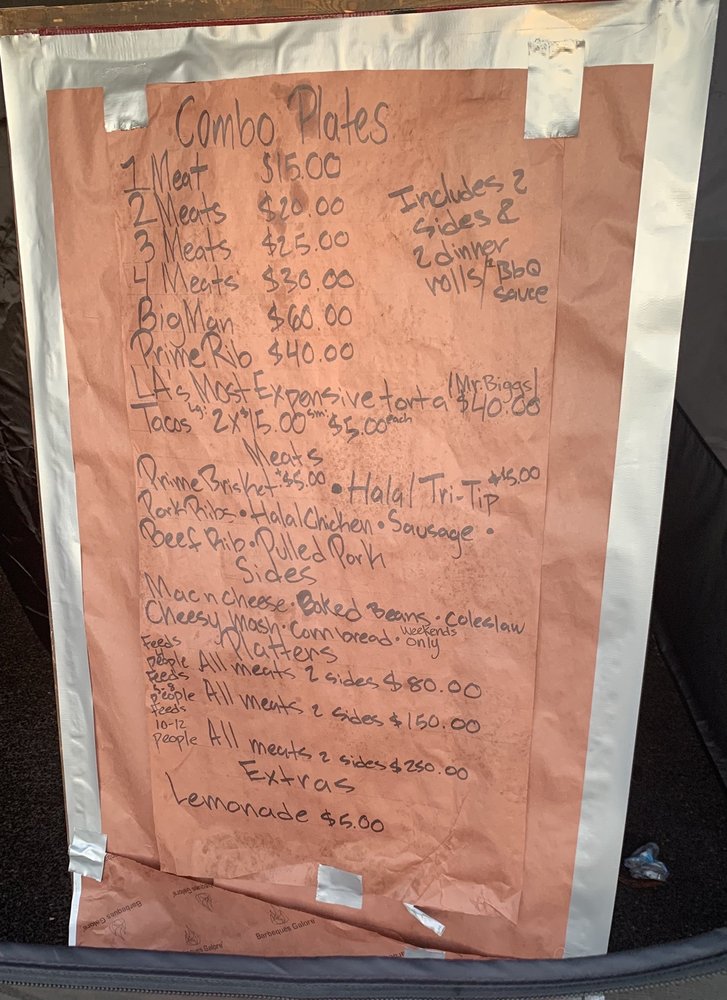 Combo Plates
1 Meat $15.00
2 Meats $20.00
3 Meats $25.00
4 Meats $30.00
Includes 2
sides &
2 dinner
rolls/ BbQ
sauce
Big Man $60.00
Prime Rib $40.00
LA's Most Expensive torta /Mr. Biggs/ $40.00
Tacos Lg: 2x$15.00 sm: $5.00 each
Meats
Prime Brisket +$5.00 • Halal Tri-Tip +$5.00
Pork Ribs • Halal Chicken • Sausage •
Beef Rib • Pulled Pork
Sides
Mac n cheese • Baked Beans • Coleslaw
Cheesy mash • Corn bread • weekends only
Platters
Feeds 4 people All meats 2 sides $80.00
Feeds 6-8 people All meats 2 sides $150.00
Feeds 10-12 people All meats 2 sides $250.00
Extras
Lemonade $5.00
Barbeques Galore
Barbeques Galore
Barbeques Galore
Barbeques Galore